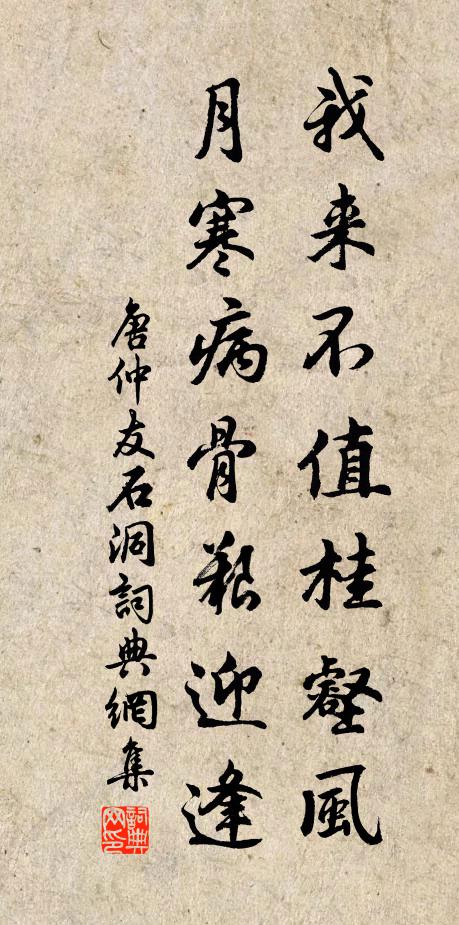 我来不值桂壑風
月寒病骨艱迎逢
唐仲友石洞詞典網集
詞典网印